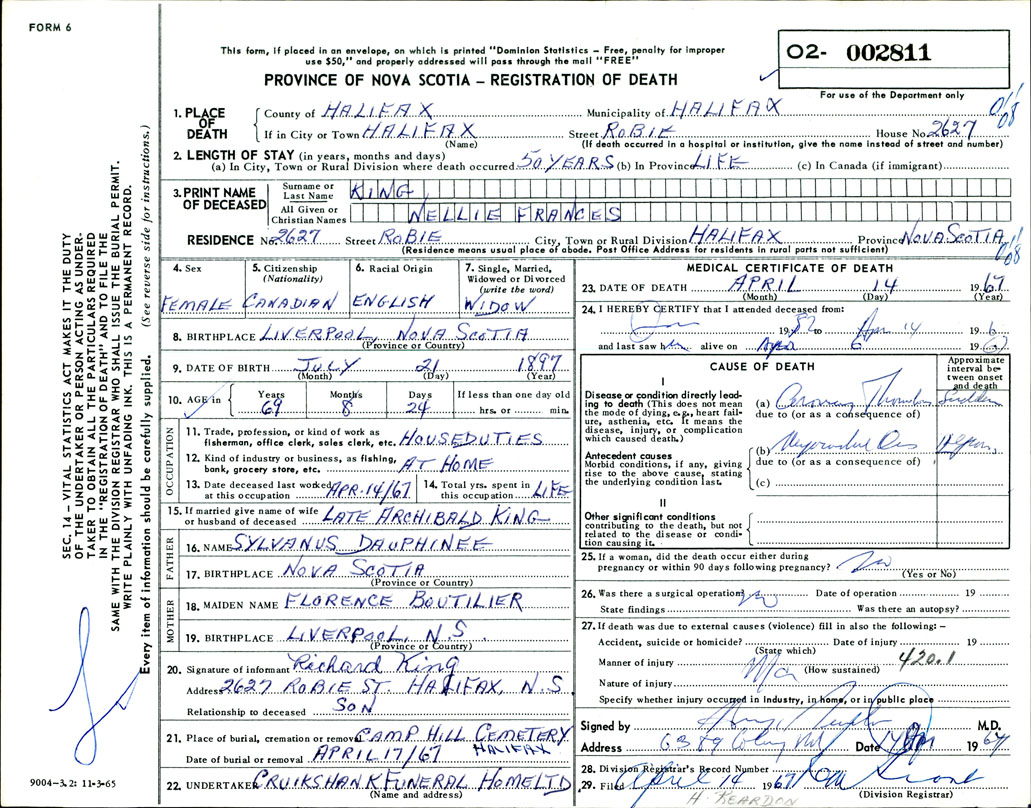 FORM 6
This form, if placed in an envelope, on which is printed "Dominion Statistics – Free, penalty for improper
use $50," and properly addressed will pass through the mail "FREE"
PROVINCE OF NOVA SCOTIA – REGISTRATION OF DEATH
02- 002811
For use of the Department only
SEC. 14 – VITAL STATISTICS ACT MAKES IT THE DUTY
OF THE UNDERTAKER OR PERSON ACTING AS UNDER-
TAKER TO OBTAIN ALL THE PARTICULARS REQUIRED
IN THE "REGISTRATION OF DEATH" AND TO FILE THE
SAME WITH THE DIVISION REGISTRAR WHO SHALL ISSUE THE BURIAL PERMIT.
WRITE PLAINLY WITH UNFADING INK. THIS IS A PERMANENT RECORD.
Every item of information should be carefully supplied. (See reverse side for instructions.)
9004-3.2: 11-3-65
1. PLACE OF DEATH
County of HALIFAX Municipality of HALIFAX
If in City or Town HALIFAX Street ROBIE House No. 2627
(Name) (If death occurred in a hospital or institution, give the name instead of street and number)
2. LENGTH OF STAY (in years, months and days)
(a) In City, Town or Rural Division where death occurred 50 YEARS (b) In Province LIFE (c) In Canada (if immigrant)
3. PRINT NAME OF DECEASED
Surname or Last Name KING
All Given or Christian Names NELLIE FRANCES
RESIDENCE No. 2627 Street ROBIE City, Town or Rural Division HALIFAX Province NOVA SCOTIA
(Residence means usual place of abode. Post Office Address for residents in rural parts not sufficient)
4. Sex FEMALE
5. Citizenship (Nationality) CANADIAN
6. Racial Origin ENGLISH
7. Single, Married, Widowed or Divorced (write the word) WIDOW
8. BIRTHPLACE LIVERPOOL, NOVA SCOTIA
(Province or Country)
9. DATE OF BIRTH JULY 21 1897
(Month) (Day) (Year)
10. AGE in Years 69 Months 8 Days 24 If less than one day hrs. or min.
OCCUPATION
11. Trade, profession, or kind of work as
fisherman, office clerk, sales clerk, etc. HOUSEDUTIES
12. Kind of industry or business, as fishing,
bank, grocery store, etc. AT HOME
13. Date deceased last worked at this occupation APR. 14/67
14. Total yrs. spent in this occupation LIFE
15. If married give name of wife
or husband of deceased LATE ARCHIBALD KING
FATHER
16. NAME SYLVANUS DAUPHINEE
17. BIRTHPLACE NOVA SCOTIA
(Province or Country)
MOTHER
18. MAIDEN NAME FLORENCE BOUTILIER
19. BIRTHPLACE LIVERPOOL, N.S.
(Province or Country)
20. Signature of informant Richard King
Address 2627 ROBIE ST. HALIFAX, N.S.
Relationship to deceased SON
21. Place of burial, cremation or removal CAMP HILL CEMETERY
HALIFAX
Date of burial or removal APRIL 17/67
22. UNDERTAKER CRUIKSHANK FUNERAL HOME LTD
(Name and address)
MEDICAL CERTIFICATE OF DEATH
23. DATE OF DEATH APRIL 14 1967
(Month) (Day) (Year)
24. I HEREBY CERTIFY that I attended deceased from:
19 to 14 196
and last saw h alive on 6 19
CAUSE OF DEATH
Approximate interval between onset and death
I
Disease or condition directly lead-
ing to death (This does not mean
the mode of dying, e.g., heart fail-
ure, asthenia, etc. It means the
disease, injury, or complication
which caused death.)
(a) Coronary Sudden
due to (or as a consequence of)
Antecedent causes
Morbid conditions, if any, giving
rise to the above cause, stating
the underlying condition last.
(b)
due to (or as a consequence of)
(c)
II
Other significant conditions
contributing to the death, but not
related to the disease or condi-
tion causing it.
25. If a woman, did the death occur either during
pregnancy or within 90 days following pregnancy? No
(Yes or No)
26. Was there a surgical operation? No Date of operation 19
State findings Was there an autopsy?
27. If death was due to external causes (violence) fill in also the following: –
Accident, suicide or homicide? Date of injury 19
(State which)
Manner of injury 420.1
(How sustained)
Nature of injury
Specify whether injury occurred in industry, in home, or in public place
Signed by M.D.
Address Date 1967
28. Division Registrar's Record Number
29. Filed April 14 1967
(Division Registrar)
H. REARDON